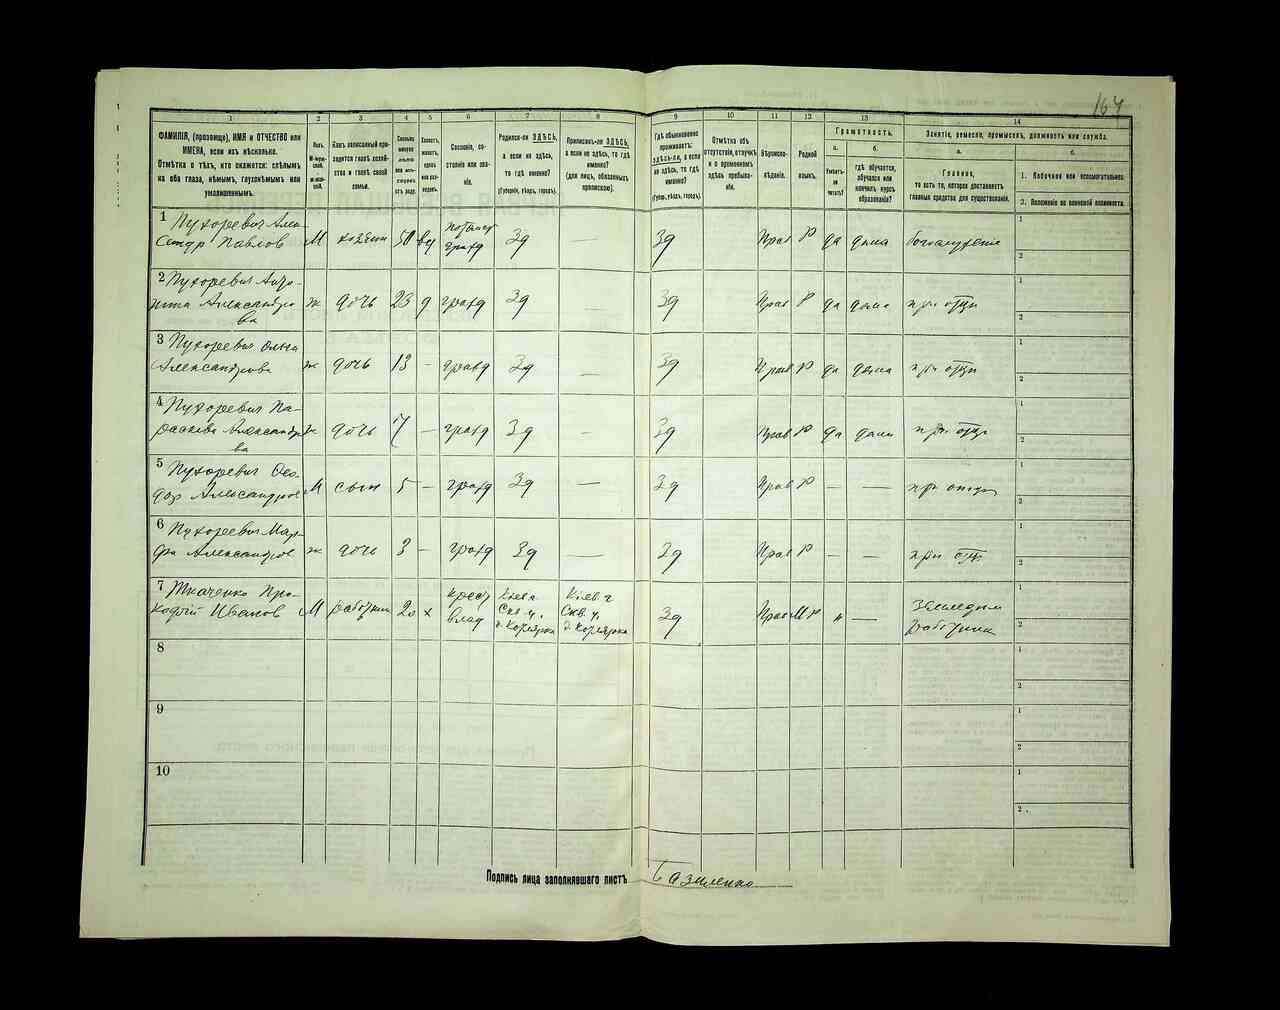 164
1 2 3 4 5 6 7 8 9 10 11 12 13 14
ФАМИЛІЯ, (прозвище), ИМЯ и ОТЧЕСТВО или
ИМЕНА, если ихъ нѣсколько.
Отмѣтка о тѣхъ, кто окажется: слѣпымъ
на оба глаза, нѣмымъ, глухонѣмымъ или
умалишеннымъ.
Полъ.
М-мужской.
Ж-женской.
Какъ записанный при-
ходится главѣ хозяй-
ства и главѣ своей
семьи.
Сколько
минуло
лѣтъ
или мѣ-
сяцевъ
отъ роду.
Холостъ,
женатъ,
вдовъ
или раз-
веденъ.
Сословіе, со-
стояніе или зва-
ніе.
Родился-ли ЗДѢСЬ,
а если не здѣсь,
то гдѣ именно?
(Губернія, уѣздъ, городъ).
Приписанъ-ли ЗДѢСЬ,
а если не здѣсь, то гдѣ
именно?
(для лицъ, обязанныхъ
припискою).
Гдѣ обыкновенно
проживаетъ:
ЗДѢСЬ-ли, а если
не здѣсь, то гдѣ
именно?
(Губерн., уѣздъ, городъ).
Отмѣтка объ
отсутствіи, отлучкѣ
и о временномъ
здѣсь пребыва-
ніи.
Вѣроиспо-
вѣданіе.
Родной
языкъ.
Грамотность.
а.
Умѣетъ-
ли
читать?
б.
гдѣ обучается,
обучался или
кончилъ курсъ
образованія?
Занятіе, ремесло, промыселъ, должность или служба.
а.
Главное,
то есть то, которое доставляетъ
главныя средства для существованія.
б.
1. Побочное или вспомогательное.
2. Положеніе по воинской повинности.
1 Пухоревич Алек-
сандр Павлов М хозяин 50 вд потомст гражд Зд — Зд Прав Р да дома 1
2
2 Пухоревич
Александро
ва ж дочь 23 д гражд Зд — Зд Прав Р да дома при отци 1
2
3 Пухоревич Ольга
Александрова ж дочь 13 - гражд Зд — Зд Прав Р да дома при отци 1
2
4 Пухоревич Па-
раскева Александро
ва ж дочь 7 — гражд Зд - Зд Прав Р да дома при отци 1
2
5 Пухоревич Фео-
дор Александров М сын 5 — гражд Зд — Зд Прав Р — — при отци 1
2
6 Пухоревич Мар-
фа Александров ж дочь 3 - гражд Зд — Зд Прав Р — — при отци 1
2
7 Ткаченко Про-
кофій Иванов М работник 20 х крест влад Кіев г Скв. у. Кіев г Скв у. Зд Прав М Р н — работник 1
2
8 1
2
9 1
2
10 1
2
Подпись лица заполнявшаго листъ Базиленко